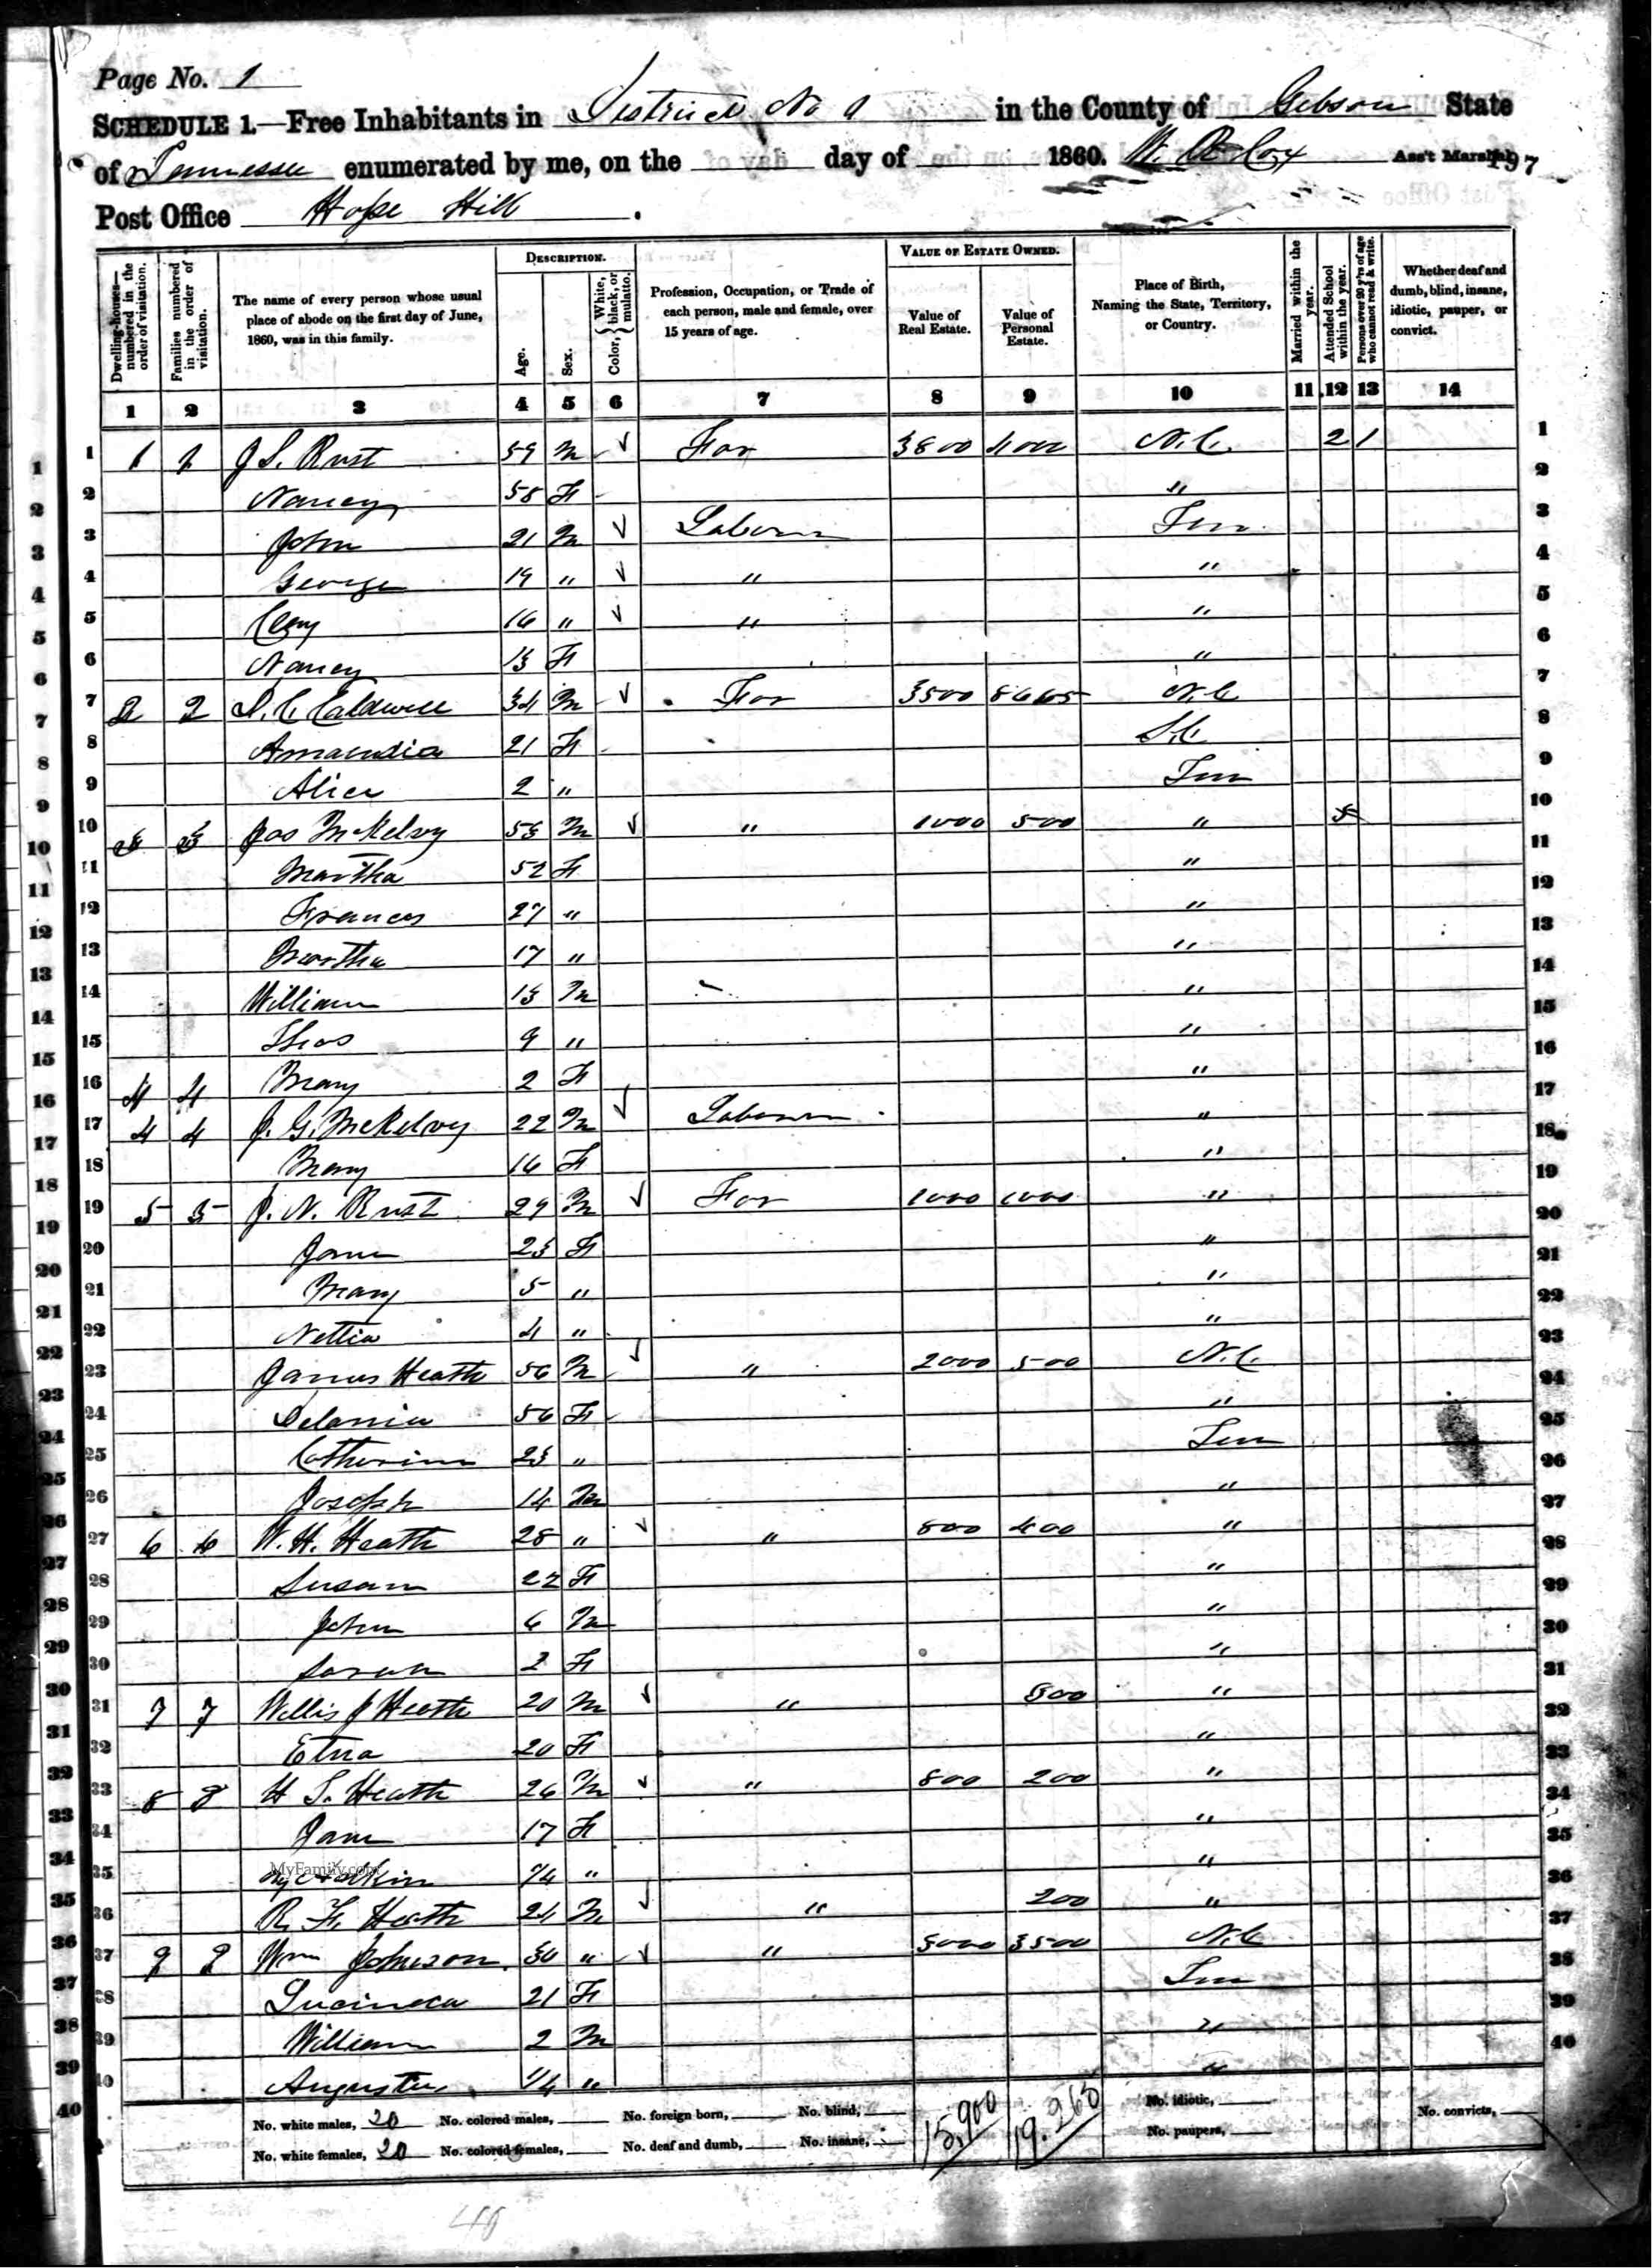 Page No. 1
SCHEDULE 1.—Free Inhabitants in District No 1 in the County of Gibson State
of Tennessee enumerated by me, on the day of 1860. Ass't Marshal 197
Post Office Hope Hill.
DESCRIPTION. VALUE OF ESTATE OWNED.
Dwelling-houses—numbered in the order of visitation.
Families numbered in the order of visitation.
The name of every person whose usual place of abode on the first day of June, 1860, was in this family.
Age.
Sex.
Color, { White, black, or mulatto.
Profession, Occupation, or Trade of each person, male and female, over 15 years of age.
Value of Real Estate.
Value of Personal Estate.
Place of Birth, Naming the State, Territory, or Country.
Married within the year.
Attended School within the year.
Persons over 20 y'rs of age who cannot read & write.
Whether deaf and dumb, blind, insane, idiotic, pauper, or convict.
1 2 3 4 5 6 7 8 9 10 11 12 13 14
1 1 1 J S. Rust 59 M ✓ Far 3800 4000 N.C. 2 1 1
2 Nancy 58 F " 2
3 John 21 M ✓ Laborer Ten 3
4 George 19 " ✓ " " 4
5 16 " ✓ " " 5
6 Nancy 13 F " 6
7 2 2 Caldwell 34 M ✓ Far 3500 8665 N.C 7
8 21 F S.C 8
9 Alice 2 " Ten 9
10 3 3 Jas McKelvy 53 M ✓ " 1000 500 " 10
11 Martha 52 F " 11
12 Frances 27 " " 12
13 Martha 17 " " 13
14 William 13 M " 14
15 Thos 9 " " 15
16 4 4 Mary 2 F " 16
17 4 4 J. G. McKelvy 22 M ✓ Laborer " 17
18 Mary 16 F " 18
19 5 5 J. N. Rust 29 M ✓ Far 1000 1000 " 19
20 Jane 23 F " 20
21 Mary 5 " " 21
22 Nettie 4 " " 22
23 James Heath 56 M ✓ " 2000 500 N.C. 23
24 56 F " 24
25 Catherine 23 " Ten 25
26 Joseph 14 M " 26
27 6 6 W. H. Heath 28 " ✓ " 800 400 " 27
28 Susan 22 F " 28
29 John 6 M " 29
30 Sarah 2 F " 30
31 7 7 Willis J Heath 20 M ✓ " 500 " 31
32 Etna 20 F " 32
33 8 8 H S. Heath 26 M ✓ " 800 200 " 33
34 Jane 17 F " 34
35 MyFamily.com " " 35
36 R. F. Heath 21 M ✓ " 200 " 36
37 9 9 Wm Johnson 30 " ✓ " 3000 3500 N.C 37
38 Lucinda 21 F Ten 38
39 William 2 M " 39
40 1/4 " " 40
No. white males, 20 No. colored males, No. foreign born, No. blind, 15,900 19.265 No. idiotic, No. convicts,
No. white females, 20 No. colored females, No. deaf and dumb, No. insane, No. paupers,
40